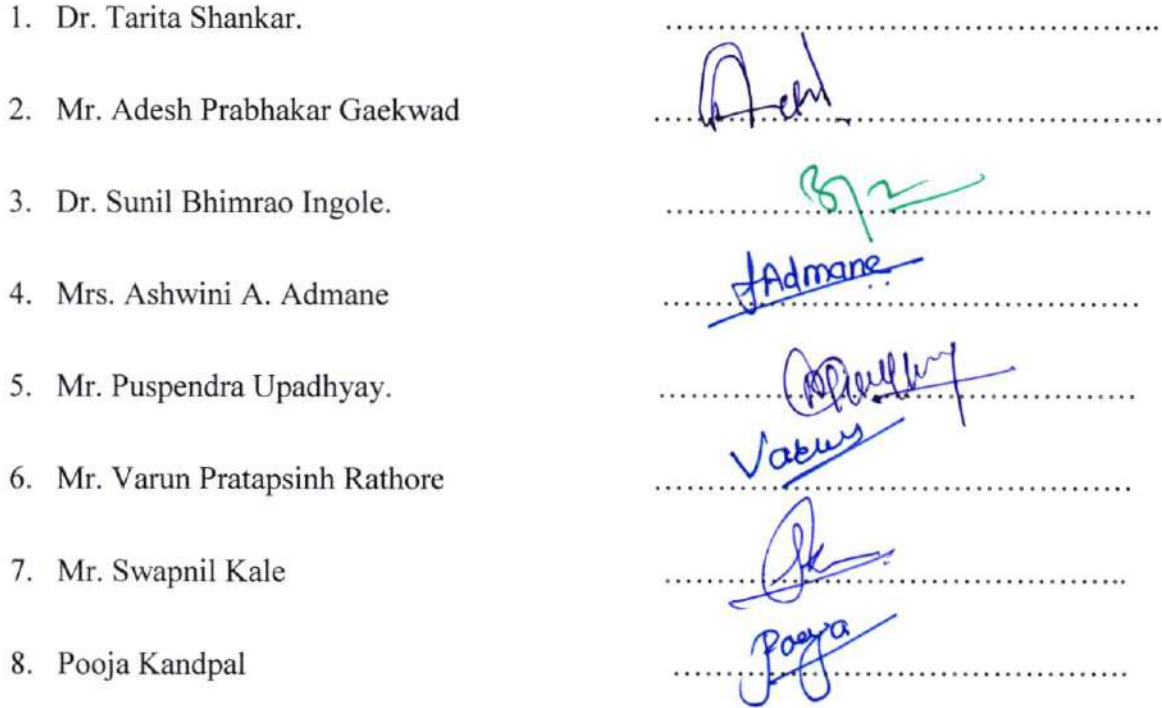 1. Dr. Tarita Shankar. ........................................................
2. Mr. Adesh Prabhakar Gaekwad ........................................................
3. Dr. Sunil Bhimrao Ingole. ........................................................
4. Mrs. Ashwini A. Admane ........................................................ Admane
5. Mr. Puspendra Upadhyay. ........................................................
6. Mr. Varun Pratapsinh Rathore ........................................................ Varun
7. Mr. Swapnil Kale ........................................................
8. Pooja Kandpal ........................................................ Pooja